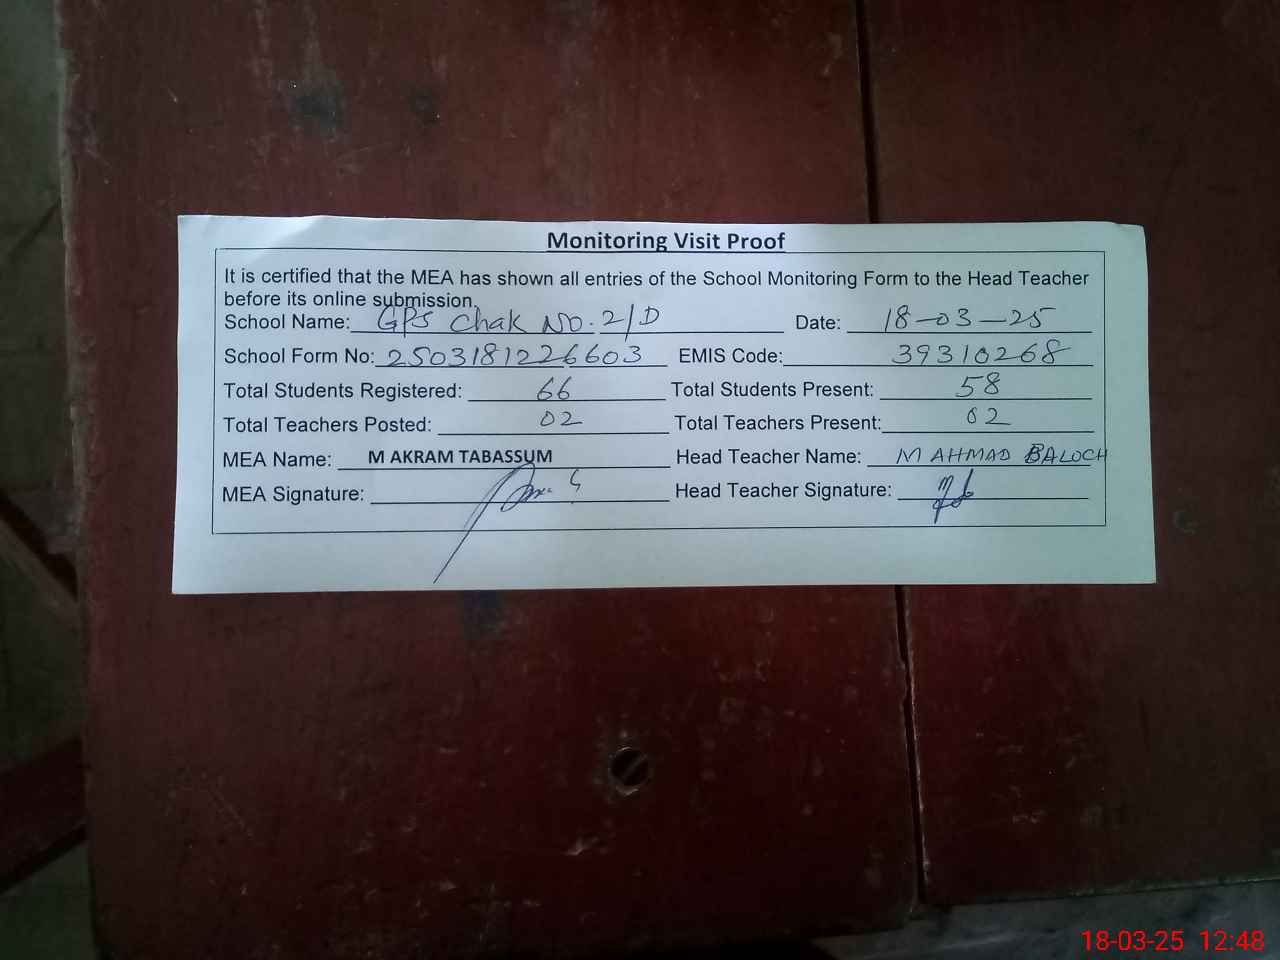 Monitoring Visit Proof
It is certified that the MEA has shown all entries of the School Monitoring Form to the Head Teacher
before its online submission.
School Name: GPS Chak No. 2/D Date: 18-03-25
School Form No: 2503181226603 EMIS Code: 39310268
Total Students Registered: 66 Total Students Present: 58
Total Teachers Posted: 02 Total Teachers Present: 02
MEA Name: M AKRAM TABASSUM Head Teacher Name: M AHMAD BALOCH
MEA Signature: Head Teacher Signature:
18-03-25 12:48